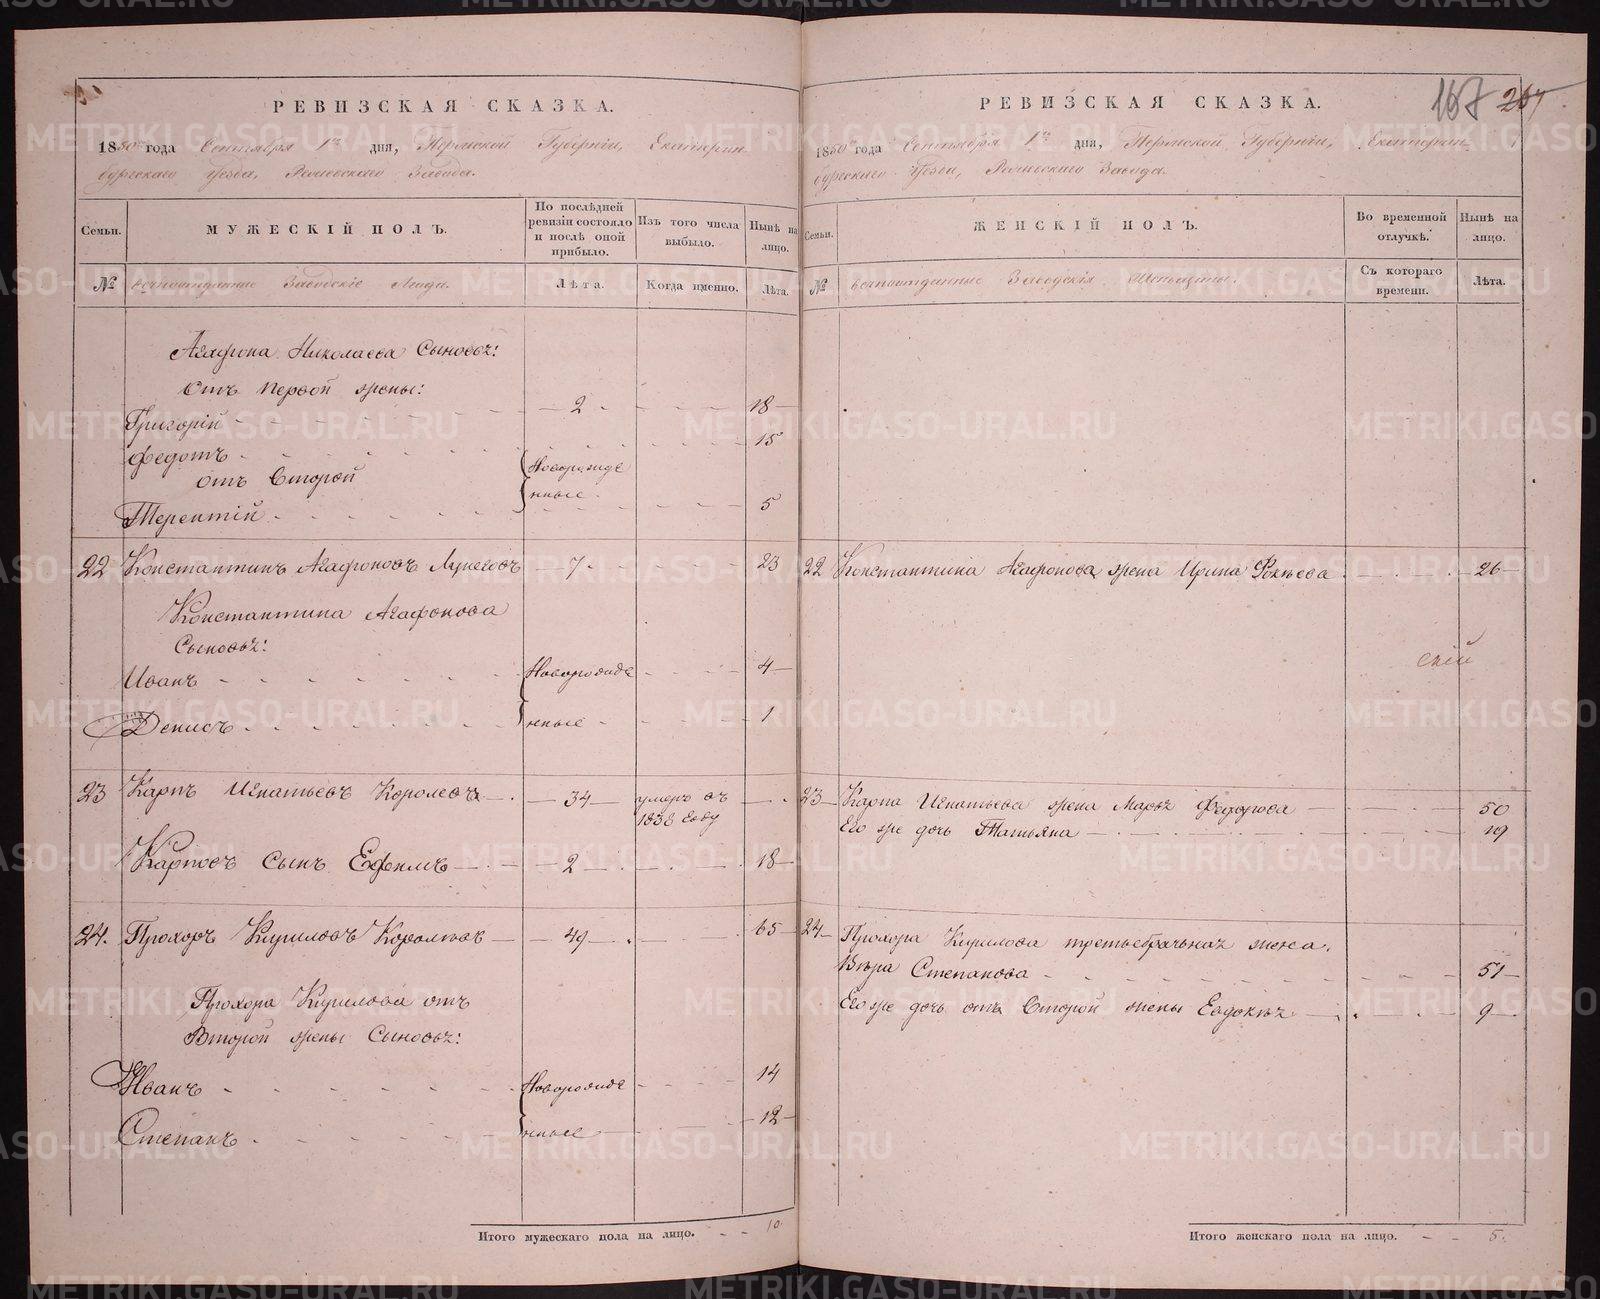 РЕВИЗСКАЯ СКАЗКА.
1850го года Сентября 1го дня, Пермской Губерніи, Екатерин
бургскаго Уезда, Завода.
Семьи.
МУЖЕСКІЙ ПОЛЪ.
По послѣдней ревизіи состояло и послѣ оной прибыло.
Изъ того числа выбыло.
Нынѣ на лицо.
№
Заводскіе Люди.
Лѣта.
Когда именно.
Лѣта.
Агафона Николаева Сыновья:
Отъ первой жены:
Григорій - 2 - 18
Федотъ - 15
отъ Второй
Новорожде
нные
Терентій - 5
22 Константинъ Агафоновъ - 7 - 23
Константина Агафонова
Сыновья:
Иванъ - Новорожде - 4
Денисъ - нные - 1
23 Карпъ Игнатьевъ Королевъ - 34 - умеръ въ
1838 году
Карповъ сынъ Ефимъ - 2 - 18
24. Прохоръ Кириловъ Королевъ - 49 - 65
Прохора Кирилова отъ
Второй жены Сыновья:
Иванъ - Новорожде - 14
Степанъ - нные - 12
Итого мужескаго пола на лицо. - - 10
167 207
РЕВИЗСКАЯ СКАЗКА.
1850го года Сентября 1го дня, Пермской Губерніи, Екатерин
бургскаго Уезда, Завода.
Семьи.
ЖЕНСКІЙ ПОЛЪ.
Во временной отлучкѣ.
Нынѣ на лицо.
№
Заводскія
Съ котораго времени.
Лѣта.
22 Константина Агафонова жена Ирина - 26
23 Карпа Игнатьева жена Марья Федорова 50
Его же дочь Татьяна - 19
24 Прохора Кирилова третьебрачная жена
Вѣра Степанова - 51
Его же дочь отъ Второй жены Евдокья - 9
Итого женскаго пола на лицо. - - 5.
METRIKI.GASO-URAL.RU